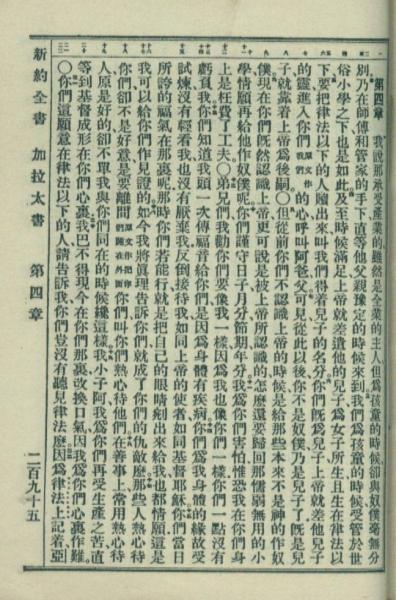 第四章 我說那承受產業的雖然是全業的主人但爲孩童的時候卻與奴僕毫無分
別乃在師傅和管家的手下直等他父親豫定的時候來到我們爲孩童的時候受管於世
俗小學之下也是如此及至時候滿足上帝就差遣他的兒子爲女子所生且生在律法以
下要把律法以下的人贖出來叫我們得着兒子的名分你們既爲兒子上帝就差他兒子
的靈進入你們原文作我們的心呼叫阿爸父可見從此以後你不是奴僕乃是兒子了既是兒
子就靠着上帝爲後嗣○但從前你們不認識上帝的時候是給那些本來不是神的作奴
僕現在你們既然認識上帝更可說是被上帝所認識的怎麽還要歸回那懦弱無用的小
學情願再給他作奴僕呢你們謹守日子月分節期年分我爲你們害怕惟恐我在你們身
上是枉費了工夫○弟兄們我勸你們要像我一樣因爲我也像你們一樣你們一點沒有
虧負我你們知道我頭一次傳福音給你們是因爲身體有疾病你們爲我身體的緣故受
試煉沒有輕看我也沒有厭棄我反倒接待我如同上帝的使者如同基督耶穌你們當日
所誇的福氣在那裏呢那時你們若能行就是把自己的眼睛剜出來給我也都情願這是
我可以給你們作見證的如今我將真理告訴你們就成了你們的仇敵麽那些人熱心待
你們卻不是好意是要離間原文作把你們關在外面你們叫你們熱心待他們在善事上常用熱心待
人原是好的卻不單我與你們同在的時候纔這樣我小子阿我爲你們再受生產之苦直
等到基督成形在你們心裏我巴不得現今在你們那裏改換口氣因我爲你們心裏作難
○你們這願意在律法以下的人請告訴我你們豈沒有聽見律法麽因爲律法上記着亞
新約全書 加拉太書 第四章 二百九十五